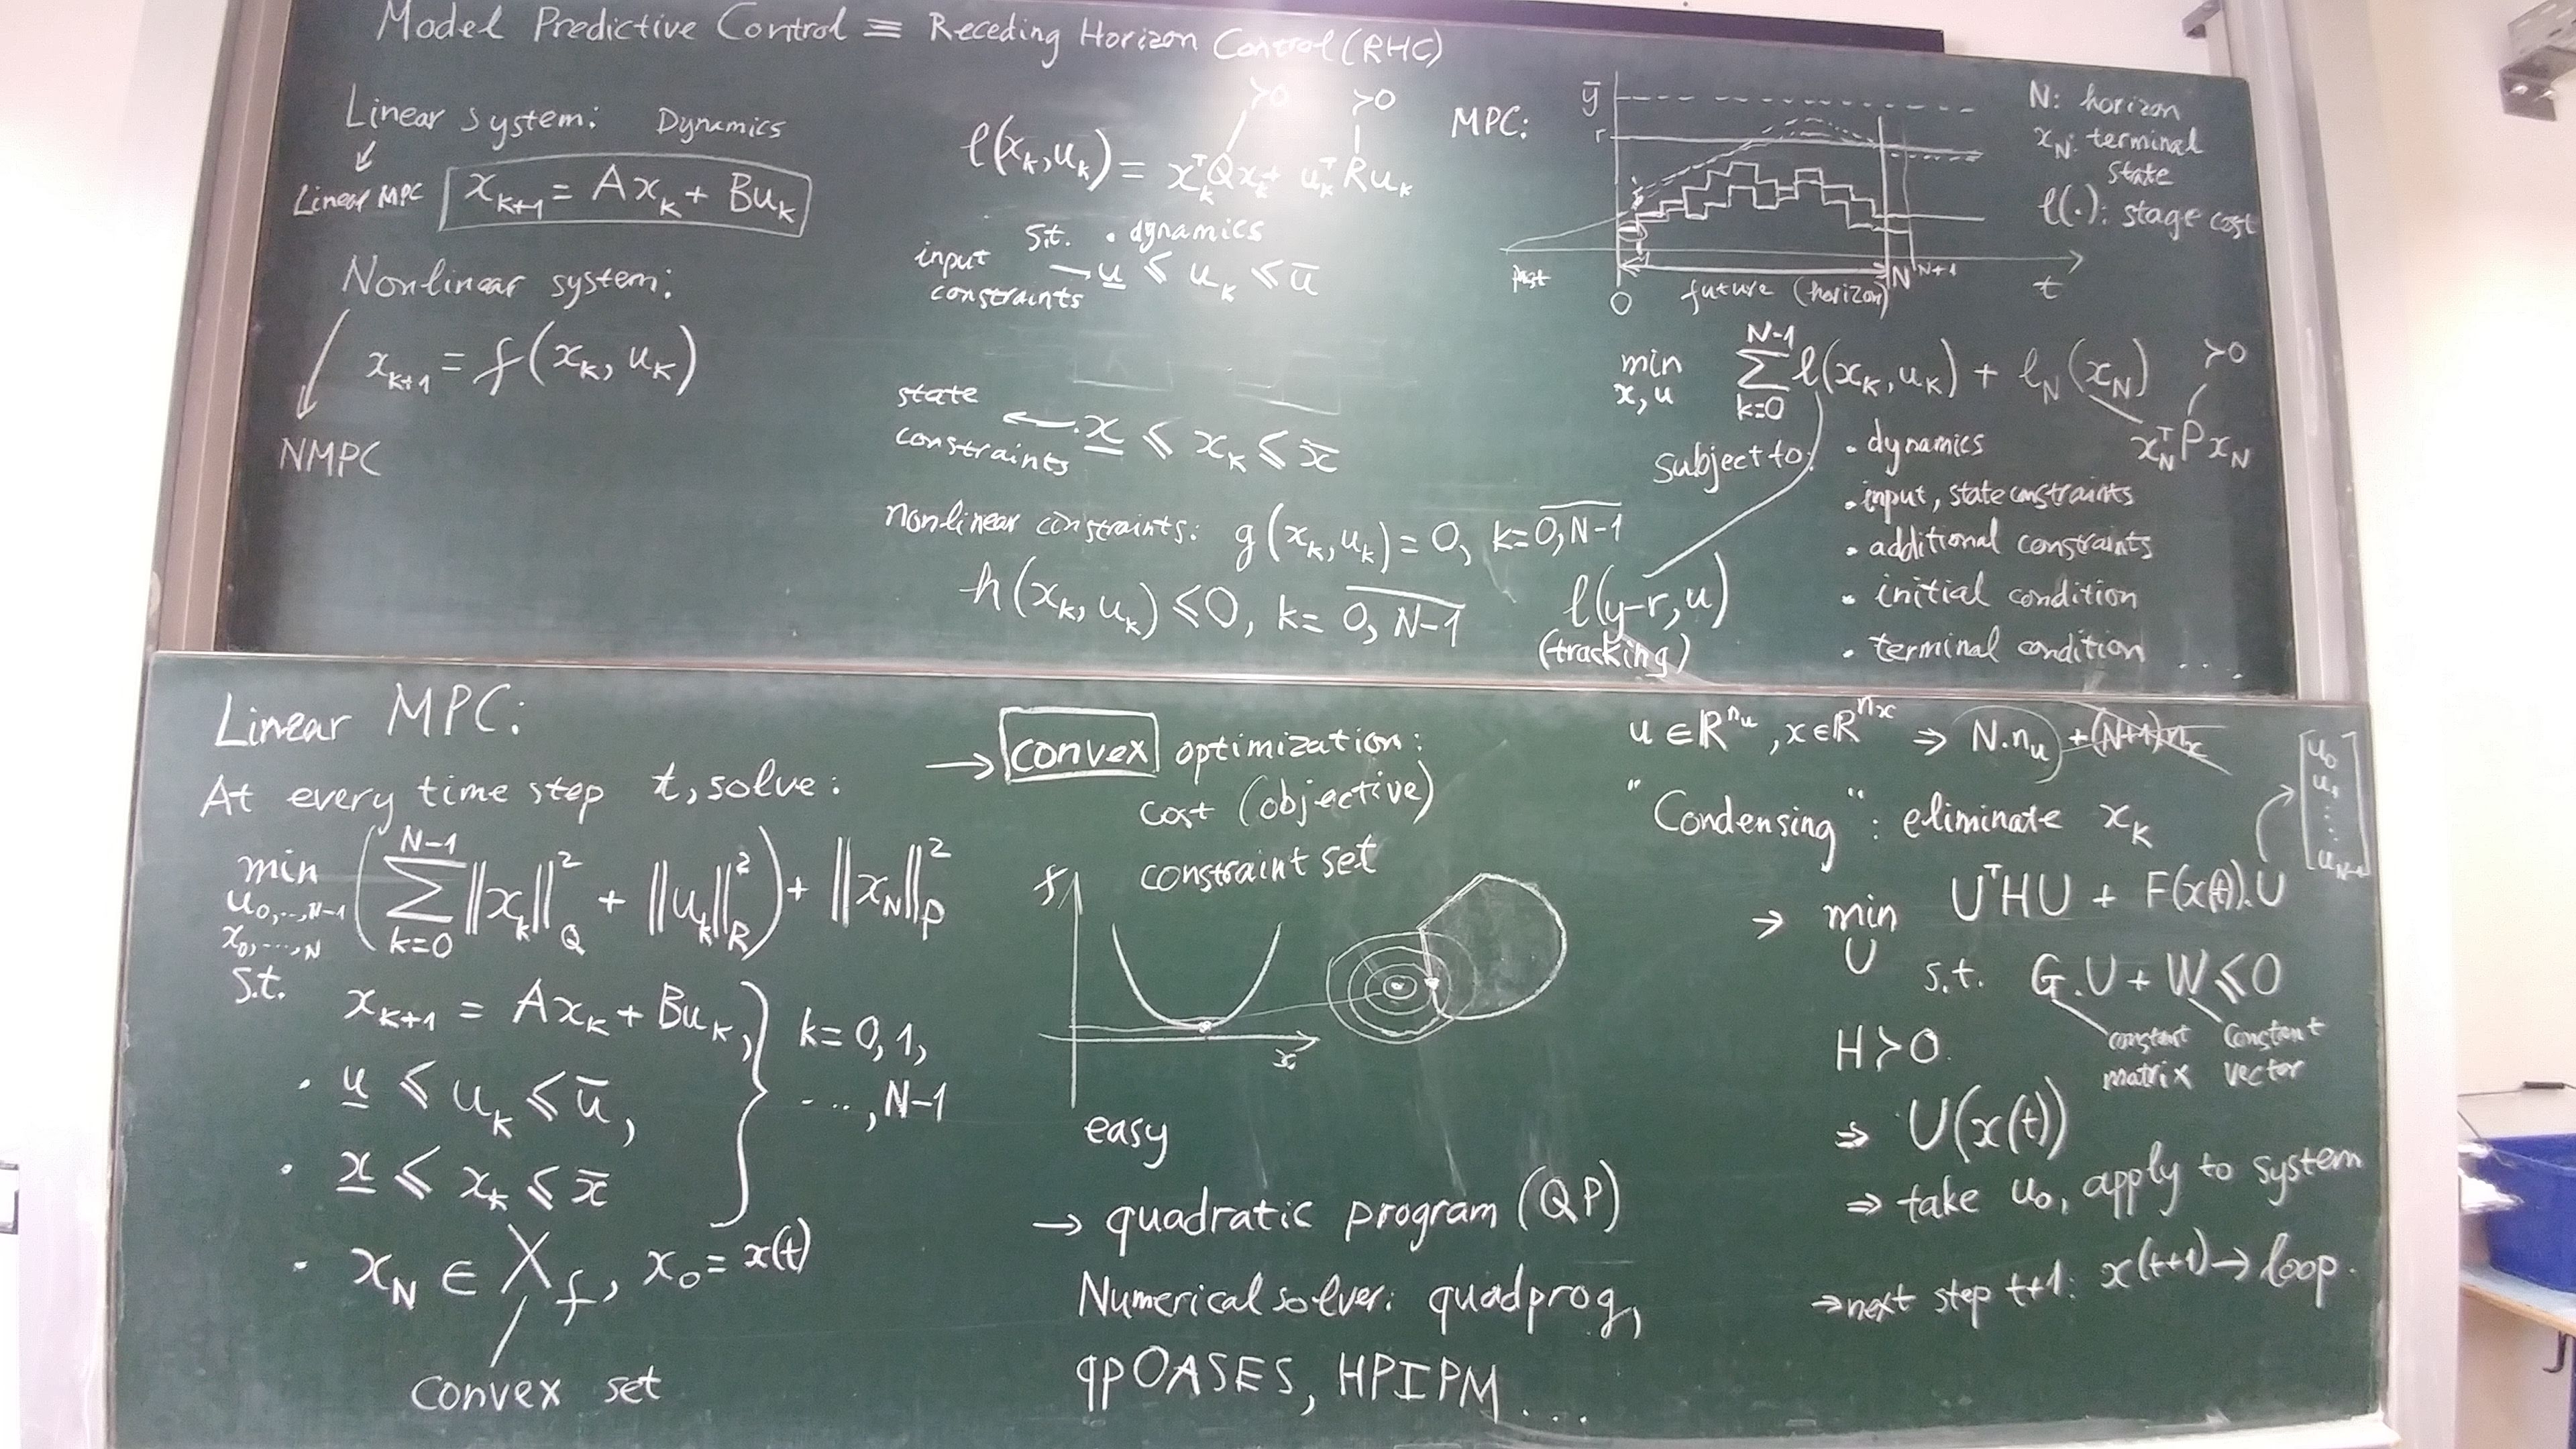 Model Predictive Control ≡ Receding Horizon Control (RHC)
Linear system: Dynamics
Linear MPC
x_{k+1} = Ax_k + Bu_k
Nonlinear system:
x_{k+1} = f(x_k, u_k)
NMPC
>0 >0
l(x_k, u_k) = x_k^T Q x_k + u_k^T R u_k
s.t. . dynamics
input constraints → u̲ ≤ u_k ≤ ū
state constraints ← . x̲ ≤ x_k ≤ x̄
nonlinear constraints: g(x_k, u_k) = 0, k = \overline{0, N-1}
h(x_k, u_k) ≤ 0, k = \overline{0, N-1}
MPC:
ȳ
r
past
0
future (horizon)
N
N+1
t
N: horizon
x_N: terminal
state
l(.): stage cost
min_{x,u} \sum_{k=0}^{N-1} l(x_k, u_k) + l_N(x_N)
>0
x_N^T P x_N
subject to:
. dynamics
. input, state constraints
. additional constraints
. initial condition
. terminal condition ....
l(y-r, u)
(tracking)
Linear MPC:
At every time step t, solve:
min_{u_0,...,N-1, x_0,...,N} ( \sum_{k=0}^{N-1} ||x_k||_Q^2 + ||u_k||_R^2 ) + ||x_N||_P^2
s.t.
x_{k+1} = Ax_k + Bu_k,
. u̲ ≤ u_k ≤ ū,
. x̲ ≤ x_k ≤ x̄
} k = 0, 1,
..., N-1
. x_N ∈ X_f, x_0 = x(t)
convex set
→ convex optimization:
cost (objective)
constraint set
f
x
easy
→ quadratic program (QP)
Numerical solver: quadprog,
qpOASES, HPIPM ...
u ∈ R^{n_u}, x ∈ R^{n_x} ⇒ N.n_u + (N+1)n_x
"Condensing": eliminate x_k
[u_0 u_1 ⋮ u_{N-1}]
→ min_U U^T H U + F(x(t)).U
s.t. G.U + W ≤ 0
constant matrix
constant vector
H > 0
⇒ U(x(t))
⇒ take u_0, apply to system
⇒ next step t+1: x(t+1) → loop.